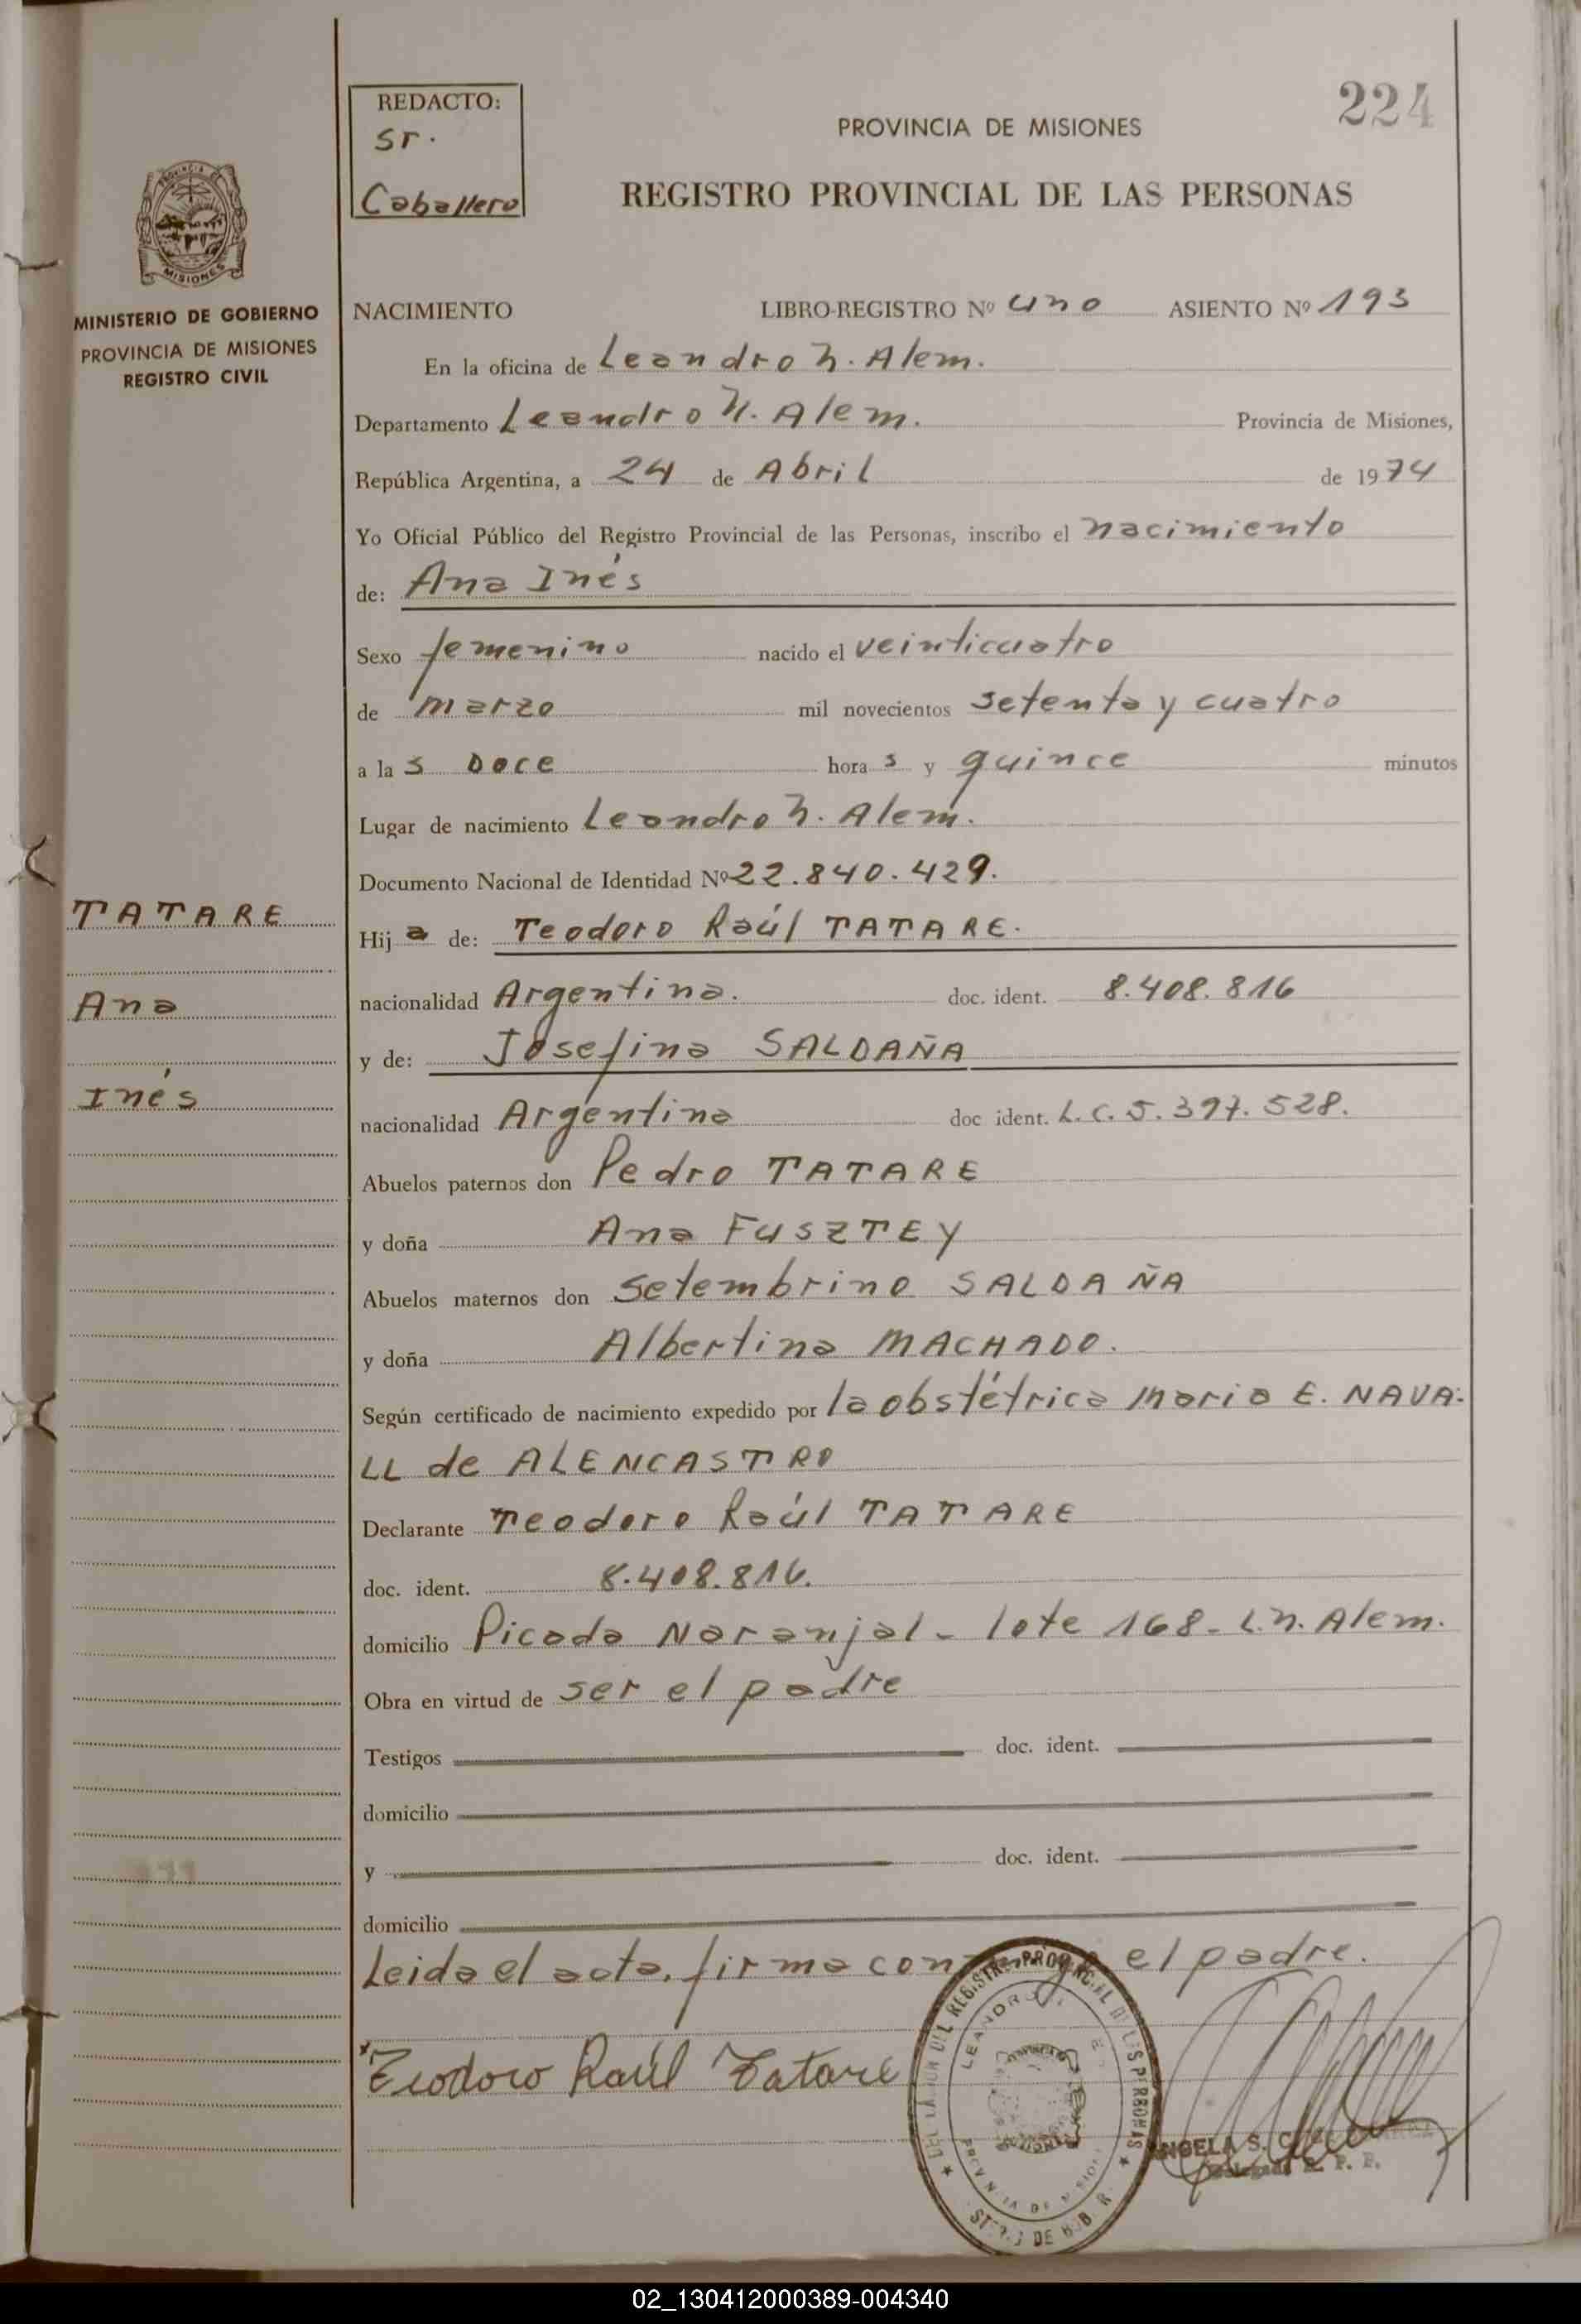 224
REDACTO:
Sr.
Caballero
PROVINCIA DE MISIONES
REGISTRO PROVINCIAL DE LAS PERSONAS
MISIONES
MINISTERIO DE GOBIERNO
PROVINCIA DE MISIONES
REGISTRO CIVIL
TATARE
Ana
Inés
NACIMIENTO LIBRO-REGISTRO Nº uno ASIENTO Nº 193
En la oficina de Leandro N. Alem.
Departamento Leandro N. Alem. Provincia de Misiones,
República Argentina, a 24 de Abril de 1974
Yo Oficial Público del Registro Provincial de las Personas, inscribo el nacimiento
de: Ana Inés
Sexo femenino nacido el veinticuatro
de marzo mil novecientos setenta y cuatro
a la s Doce hora s y quince minutos
Lugar de nacimiento Leandro N. Alem.
Documento Nacional de Identidad Nº 22.840.429.
Hij a de: Teodoro Raúl TATARE.
nacionalidad Argentina. doc. ident. 8.408.816
y de: Josefina SALDAÑA
nacionalidad Argentina doc ident. L.C. 5.397.528.
Abuelos paternos don Pedro TATARE
y doña Ana FUSZTEY
Abuelos maternos don Setembrino SALDAÑA
y doña Albertina MACHADO.
Según certificado de nacimiento expedido por la obstétrica Maria E. NAVA-
LL de ALENCASTRO
Declarante Teodoro Raúl TATARE
doc. ident. 8.408.816.
domicilio Picada Naranjal - lote 168 - L.N. Alem.
Obra en virtud de ser el padre
Testigos doc. ident.
domicilio
y doc. ident.
domicilio
Leida el acta, firma conmigo el padre.
Teodoro Raúl Tatare
PROVINCIA DE MISIONES
ANGELA S.
02_130412000389-004340